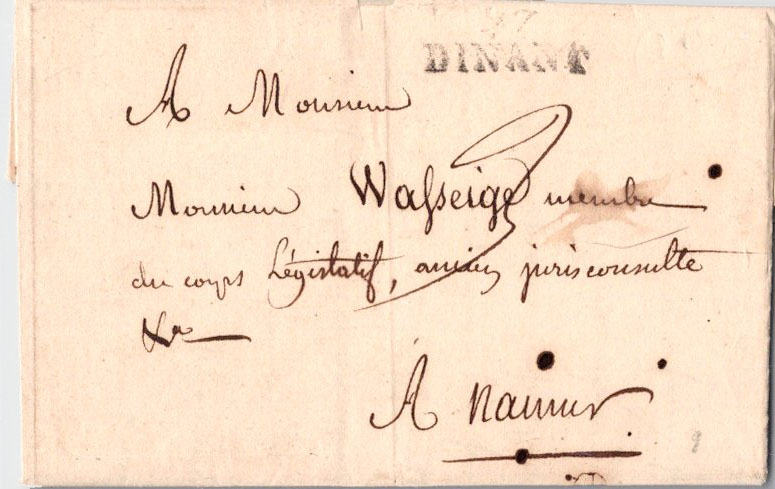 97
DINANT
A Monsieur
Monsieur Wasseige membre
du corps Législatif, ancien jurisconsulte
&a
A namur
9